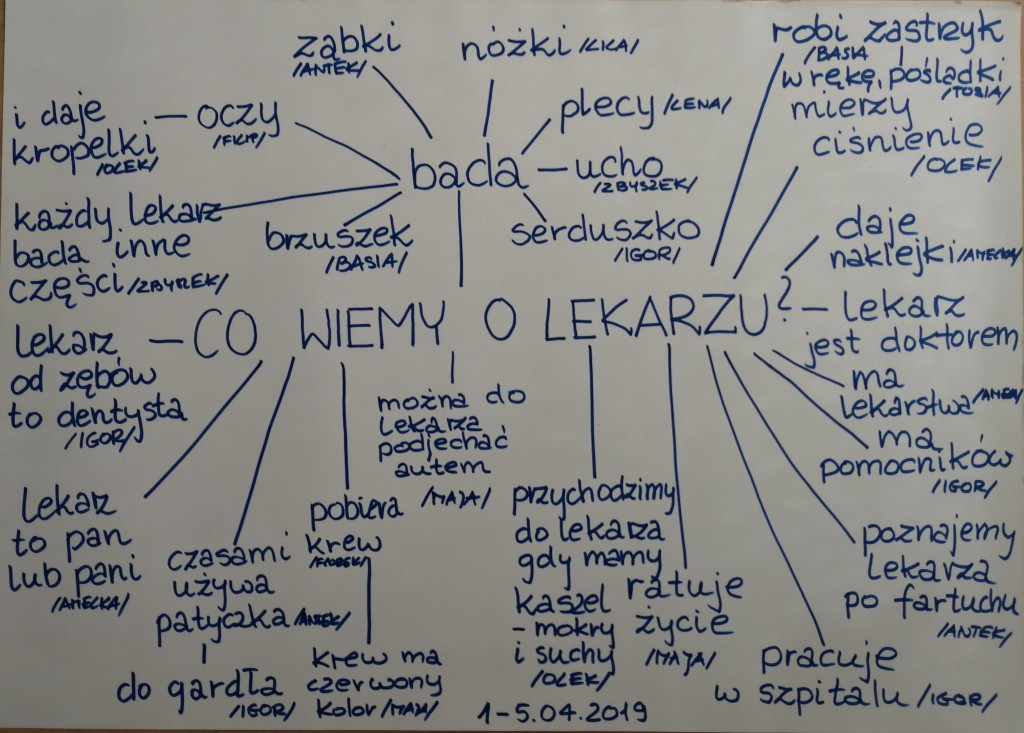 ząbki
/ANTEK/
nóżki /KIKA/
robi zastrzyk
/BASIA
w rękę, pośladki
/TOSIA/
i daje
kropelki
/OLEK/
oczy
/FILIP/
plecy /LENA/
mierzy
ciśnienie
/OLEK/
bada
ucho
/ZBYSZEK/
każdy lekarz
bada inne
części /ZBYREK/
brzuszek
/BASIA/
serduszko
/IGOR/
daje
naklejki /AMELKA/
CO WIEMY O LEKARZU?
lekarz
od zębów
to dentysta
/IGOR/
lekarz
jest doktorem
ma
lekarstwa
ma
pomocników
/IGOR/
można do
lekarza
podjechać
autem
/MAJA/
lekarz
to pan
lub pani
/AMELKA/
czasami
używa
patyczka /ANTEK/
do gardła
/IGOR/
pobiera
krew
krew ma
czerwony
kolor /MAJA/
przychodzimy
do lekarza
gdy mamy
kaszel
- mokry
i suchy
/OLEK/
ratuje
życie
/MAJA/
poznajemy
lekarza
po fartuchu
/ANTEK/
pracuje
w szpitalu /IGOR/
1-5.04.2019